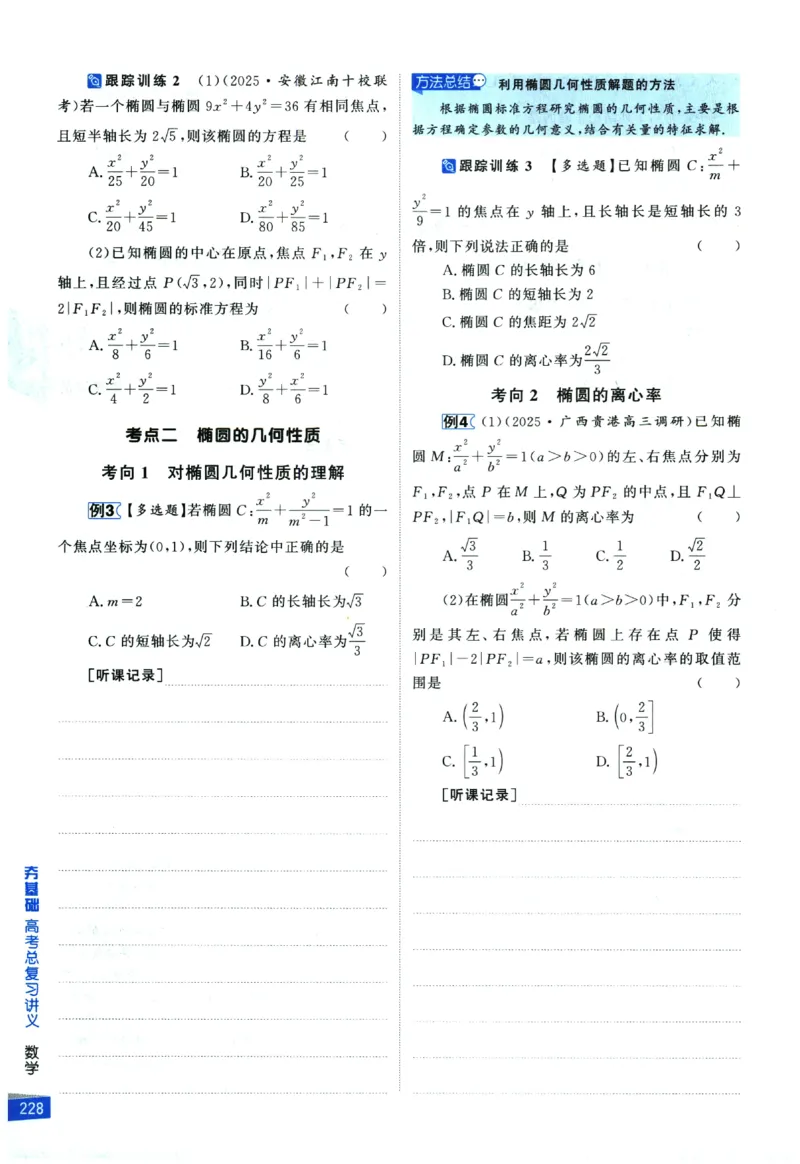 跟踪训练 2 (1)(2025·安徽江南十校联
考)若一个椭圆与椭圆 9x²+4y²=36 有相同焦点,
且短半轴长为 2√5,则该椭圆的方程是 ( )
A. x²/25+y²/20=1 B. x²/20+y²/25=1
C. x²/20+y²/45=1 D. x²/80+y²/85=1
(2)已知椭圆的中心在原点,焦点 F₁,F₂ 在 y
轴上,且经过点 P(√3,2),同时|PF₁|+|PF₂|=
2|F₁F₂|,则椭圆的标准方程为 ( )
A. x²/8+y²/6=1 B. x²/16+y²/6=1
C. x²/4+y²/2=1 D. y²/8+x²/6=1
考点二 椭圆的几何性质
考向 1 对椭圆几何性质的理解
例3 【多选题】若椭圆 C: x²/m+y²/(m²-1)=1 的一
个焦点坐标为(0,1),则下列结论中正确的是
( )
A. m=2 B. C 的长轴长为√3
C. C 的短轴长为√2 D. C 的离心率为√3/3
[听课记录]
方法总结 利用椭圆几何性质解题的方法
根据椭圆标准方程研究椭圆的几何性质,主要是根
据方程确定参数的几何意义,结合有关量的特征求解.
跟踪训练 3 【多选题】已知椭圆 C: x²/m+
y²/9=1 的焦点在 y 轴上,且长轴长是短轴长的 3
倍,则下列说法正确的是 ( )
A. 椭圆 C 的长轴长为 6
B. 椭圆 C 的短轴长为 2
C. 椭圆 C 的焦距为 2√2
D. 椭圆 C 的离心率为 2√2/3
考向 2 椭圆的离心率
例4 (1)(2025·广西贵港高三调研)已知椭
圆 M: x²/a²+y²/b²=1(a>b>0)的左、右焦点分别为
F₁,F₂,点 P 在 M 上,Q 为 PF₂ 的中点,且 F₁Q⊥
PF₂,|F₁Q|=b,则 M 的离心率为 ( )
A. √3/3 B. 1/3 C. 1/2 D. √2/2
(2)在椭圆 x²/a²+y²/b²=1(a>b>0)中,F₁,F₂ 分
别是其左、右焦点,若椭圆上存在点 P 使得
|PF₁|-2|PF₂|=a,则该椭圆的离心率的取值范
围是 ( )
A. (2/3,1) B. (0,2/3]
C. [1/3,1) D. [2/3,1)
[听课记录]
夯基础 高考总复习讲义 数学
228